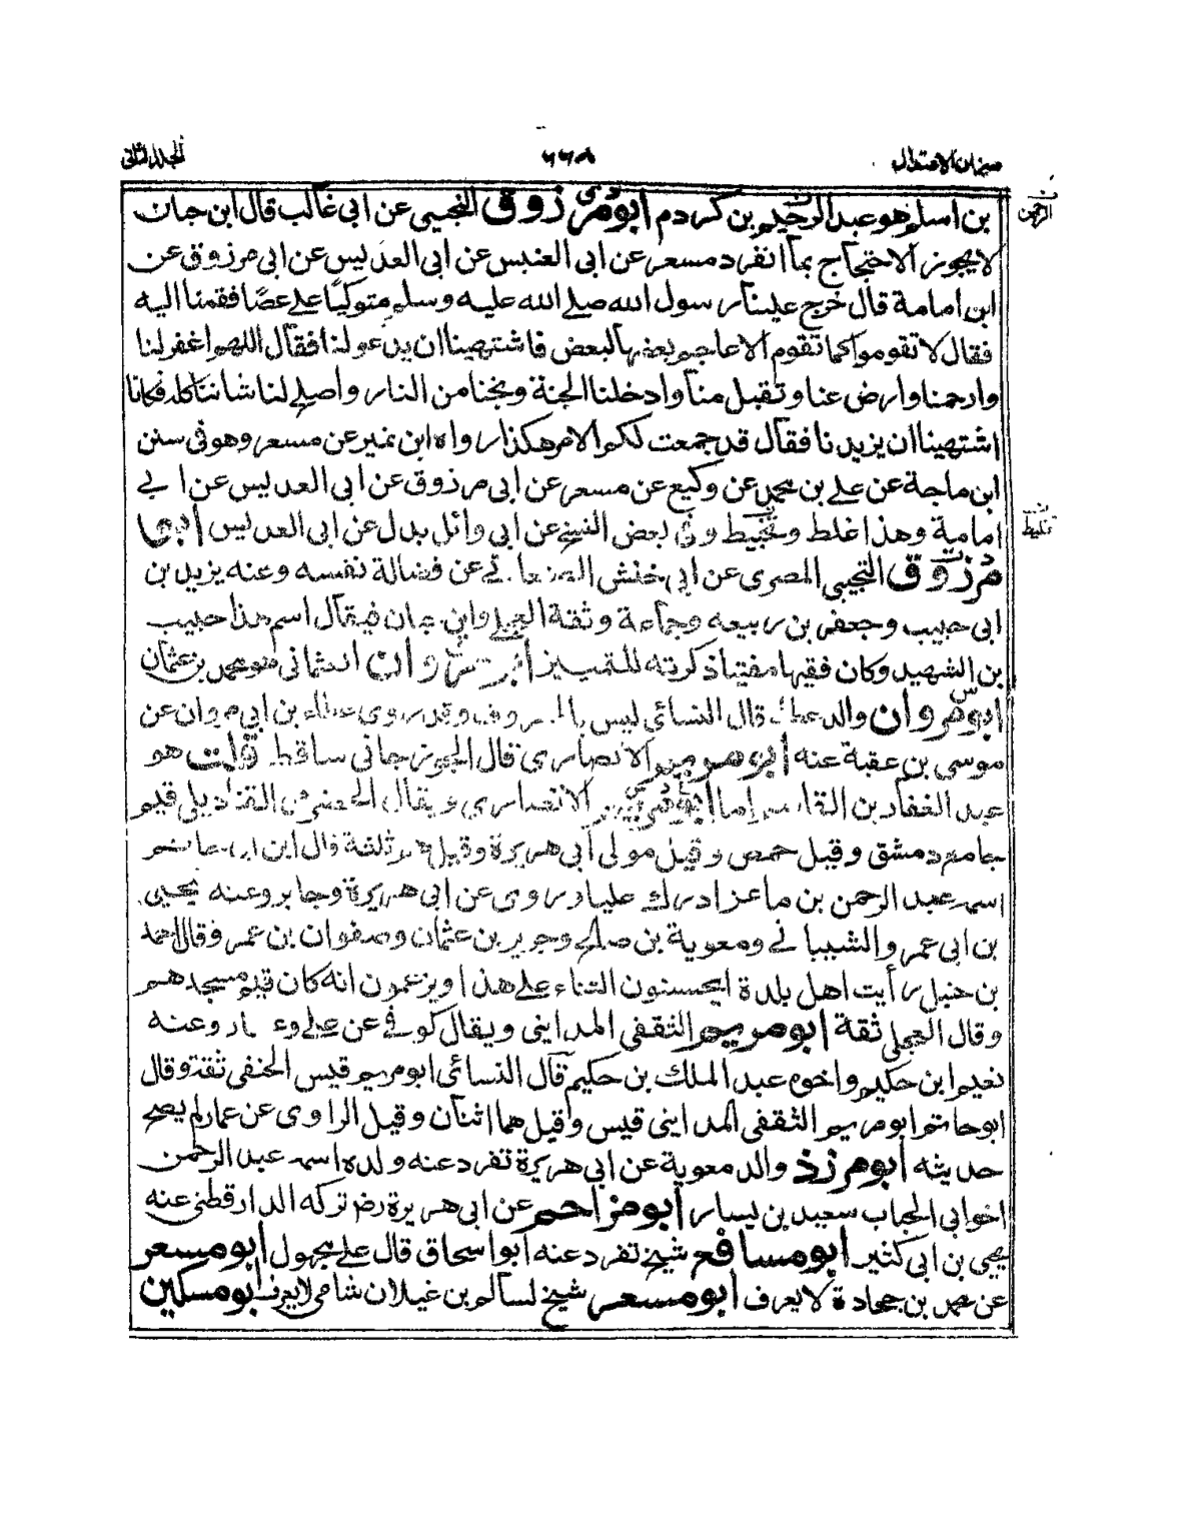 ميزان الاعتدال ٦٦٨ المجلد الثاني
بن اسلم هو عبد الرحيم بن كردم ابو مرزوق التجيبي عن ابي غالب قال ابن حبان
الرحمن
لا يجوز الاحتجاج بما انفرد مسعر عن ابى العنبس عن ابى العدبس عن ابى مرزوق عن
ابن امامة قال خرج علينا رسول الله صلى الله عليه وسلم متوكيًا على عصًا فقمنا اليه
فقال لا تقوموا كما تقوم الاعاجم بعضها لبعض فاشتهينا ان يدعو لنا فقال اللهم اغفر لنا
وارحمنا وارض عنا وتقبل منا وادخلنا الجنة ونجنا من النار واصلح لنا شاننا كله فكانا
اشتهينا ان يزيدنا فقال قد جمعت لكم الامر هكذا رواه ابن نمير عن مسعر وهو في سنن
ابن ماجة عن على بن محمد عن وكيع عن مسعر عن ابى مرزوق عن ابى العدبس عن ابى
امامية وهذا غلط وتخبيط وفى بعض النسخ عن ابى وائل بدل عن ابى العدبس ابى
تخليط
مرزوق التجيبى المصرى عن ابى حنش الصنعانى عن فضالة نفسه وعنه يزيد بن
ابى حبيب وجعفر بن ربيعه وجماعة وثقة العجلى وابن حبان فيقال اسم هذا حبيب
بن الشهيد وكان فقيها مفتيا ذكرته للتمييز ابو مروان العثمانى هو محمد بن عثمان
ابو مروان والد عطاء قال النسائى ليس بالمعروف وقد روى عطاء بن ابى مروان عن
موسى بن عقبة عنه ابو مريم الانصارى قال الجوزجانى ساقط قلت هو
عبد الغفار بن القاسم اما ابو مريم الانصارى ويقال الحضرمى القناديلى قيم
جامع دمشق وقيل حمص وقيل مولى ابى هريرة وقيل ثلثة قال ابن ابى حاتم
اسمه عبد الرحمن بن ماعز ادرك عليا وروى عن ابى هريرة وجابر وعنه يحيى
بن ابى عمرو الشيبانى ومعوية بن صالح وجرير بن عثمان وصفوان بن عمر وقال احمد
بن حنبل رأيت اهل بلدة يحسنون الثناء على هذا ويزعمون انه كان قيم مسجدهم
وقال العجلى ثقة ابو مريم الثقفى المداينى ويقال كوفى عن على وعمار وعنه
نعيم ابن حكيم واخوه عبد الملك بن حكيم قال النسائى ابو مريم قيس الحنفى ثقة وقال
ابو حاتم ابو مريم الثقفى المداينى قيس وقيل هما اثنان وقيل الراوى عن عمار لم يصح
حديثه ابو مزرد والد معوية عن ابى هريرة تفرد عنه ولده اسمه عبد الرحمن
اخو ابى الحباب سعيد بن يسار ابو مزاحم عن ابى هريرة رض تركه الدارقطنى عنه
يحيى بن ابى كثير ابو مسافع شيخ تفرد عنه ابو اسحاق قال على مجهول ابو مسعر
عن محمد بن جحادة لا يعرف ابو مسعر شيخ لسالم بن غيلان شامى لا يعرف ابو مسكين